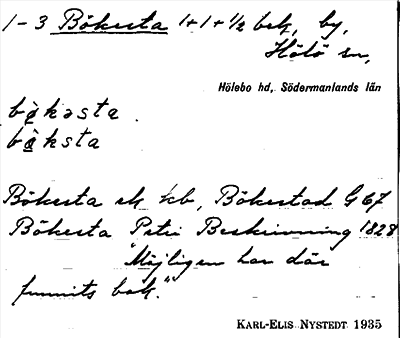 1-3 Bökesta 1+1+½ bek, by,
Hölö sn,
Hölebo hd, Södermanlands län
bö̀kəsta
bö̀ksta
Bökesta ek kb, Bökestad G 67
Bökesta Petri Beskrivning 1828
"Möjligen har där
funnits bok."
KARL-ELIS NYSTEDT 1935